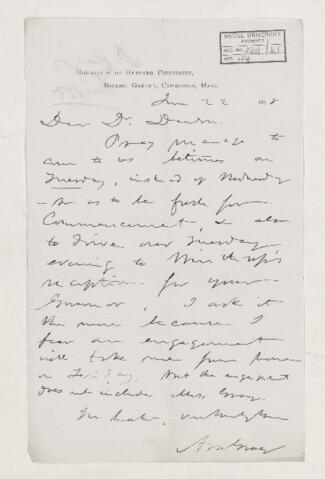 McGILL UNIVERSITY
ARCHIVES
ACC. NO.
REF.
HERBARIUM OF HARVARD UNIVERSITY,
BOTANIC GARDEN, CAMBRIDGE, MASS.
June 22
Dear Dr. Dawson
Pray manage to
come to us betimes on
Tuesday, instead of Wednesday
- so as to be fresh for
Commencement, & also
to drive over Tuesday
evening to Winthrop's
reception for your
Governor, I ask it
the more because I
fear an engagement
will take me from home
on
but the engagement
does not include Mrs. Gray.
In haste,
Asa Gray